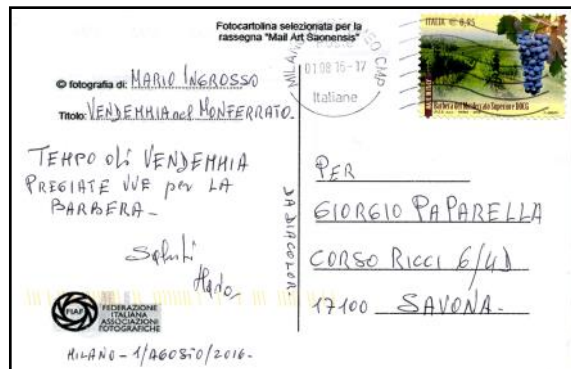 Fotocartolina selezionata per la
rassegna "Mail Art Saonensis"
© fotografia di: MARIO INGROSSO
Titolo: VENDEMMIA nel MONFERRATO.
TEMPO di VENDEMMIA
PREGIATE UVE per LA
BARBERA -
Saluti
Mario
FIAF
FEDERAZIONE
ITALIANA
ASSOCIAZIONI
FOTOGRAFICHE
MILANO - 1/AGOSTO/2016 -
DA DIACOLOR
MILANO
CMP
01 08 16 - 17
Italiane
ITALIA € 0,95
Barbera del Monferrato Superiore DOCG
PER
GIORGIO PAPARELLA
CORSO RICCI 6/4D
17100 SAVONA -